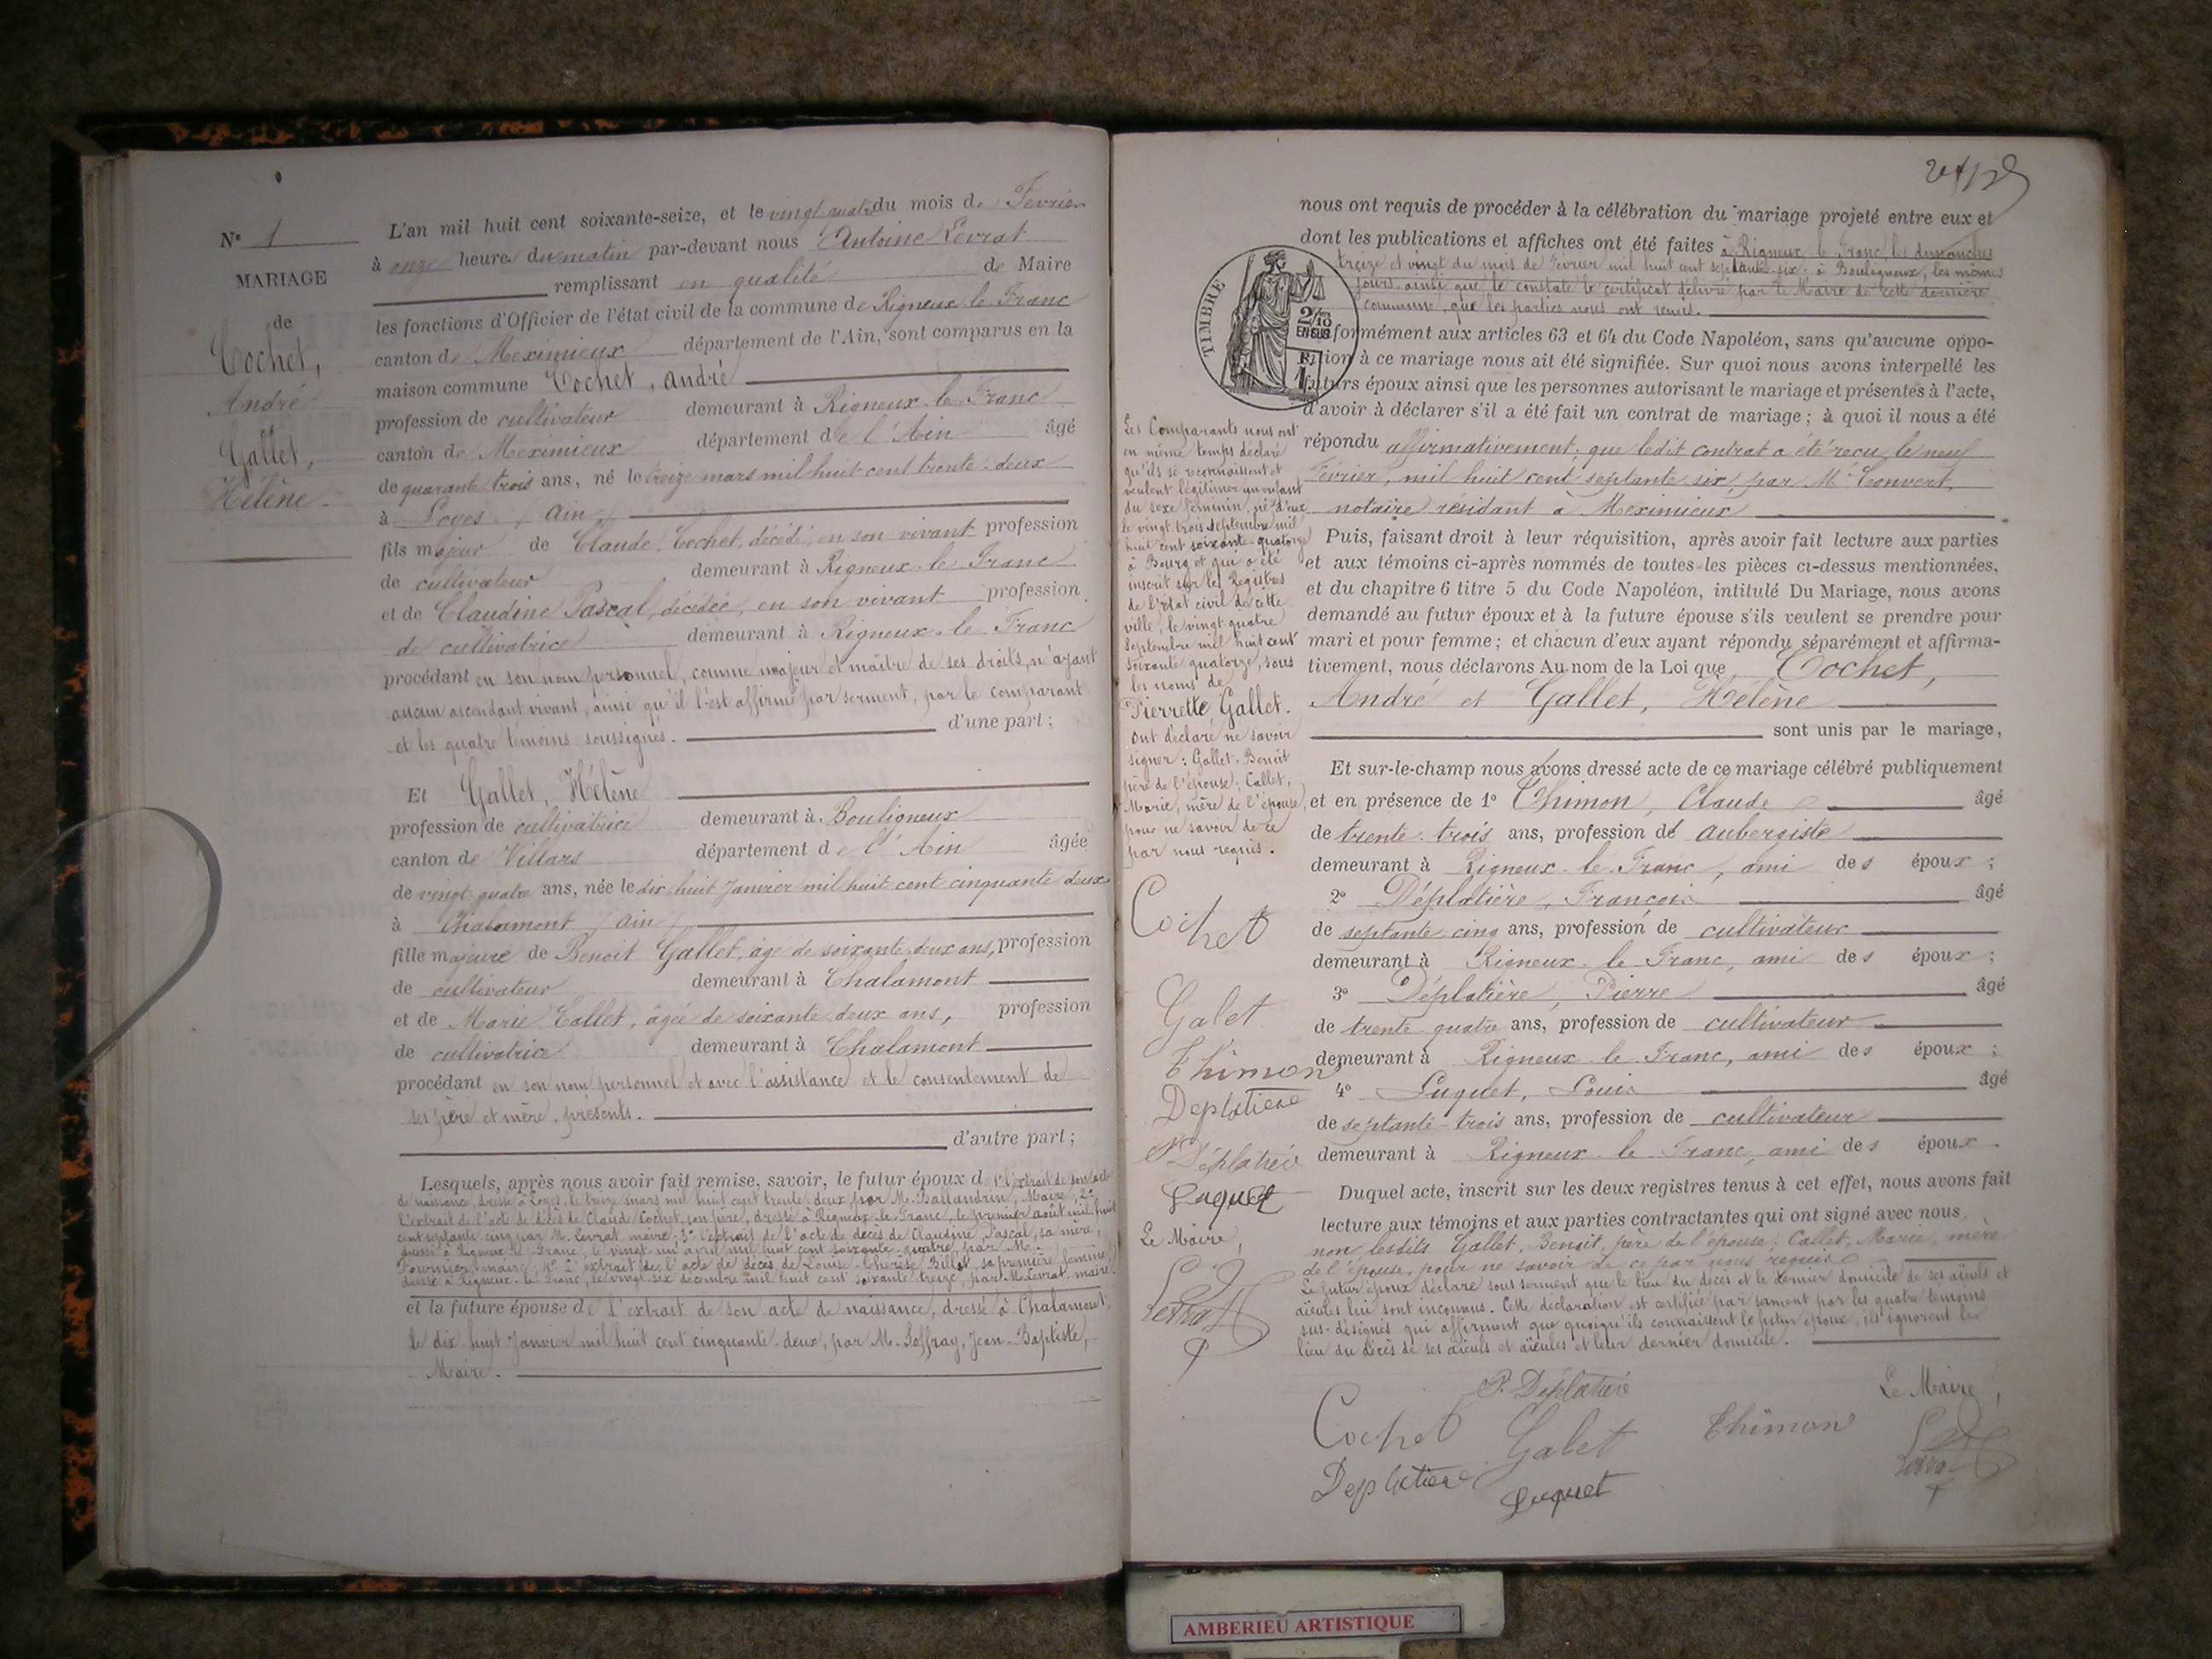 N° 1
MARIAGE
de
Cochet,
André
et
Gallet,
Hélène.
L'an mil huit cent soixante-seize, et le vingt quatre du mois de Février
à onze heures du matin par-devant nous Antoine Levrat
remplissant en qualité de Maire
les fonctions d'Officier de l'état civil de la commune de Rigneux le Franc
canton de Meximieux département de l'Ain, sont comparus en la
maison commune Cochet, André
profession de cultivateur demeurant à Rigneux-le-Franc
canton de Meximieux département de l'Ain âgé
de quarante trois ans, né le treize mars mil huit cent trente-deux
à Loyes, Ain
fils majeur de Claude Cochet, décédé, en son vivant profession
de cultivateur demeurant à Rigneux-le-Franc
et de Claudine Pascal, décédée, en son vivant profession
de cultivatrice demeurant à Rigneux-le-Franc
procédant en son nom personnel, comme majeur et maître de ses droits, n'ayant
aucun ascendant vivant, ainsi qu'il l'est affirmé par serment, par le comparant
et les quatre témoins soussignés. d'une part;
Et Gallet, Hélène
profession de cultivatrice demeurant à Bouligneux
canton de Villars département de l'Ain âgée
de vingt quatre ans, née le dix huit Janvier mil huit cent cinquante deux
à Chalamont (Ain)
fille majeure de Benoit Gallet, âgé de soixante deux ans, profession
de cultivateur demeurant à Chalamont
et de Marie Callet, âgée de soixante deux ans, profession
de cultivatrice demeurant à Chalamont
procédant en son nom personnel et avec l'assistance et le consentement de
ses père et mère, présents.
d'autre part;
Lesquels, après nous avoir fait remise, savoir, le futur époux de 1° l'extrait de son acte
de naissance, dressé à Loyes, le treize mars mil huit cent trente-deux par M. Ballandrin, Maire, 2°
l'extrait de l'acte de décès de Claude Cochet, son père, dressé à Rigneux-le-Franc, le premier août mil huit
cent septante cinq par M. Levrat, maire; 3° l'extrait de l'acte de décès de Claudine Pascal, sa mère,
dressé à Rigneux-le-Franc, le vingt-un avril mil huit cent soixante-quatre, par M.
Fournier, maire, 4° l'extrait de l'acte de décès de Louise-Thérèse Billot, sa première femme,
dressé à Rigneux-le-Franc, le vingt-six décembre mil huit cent soixante treize, par M. Levrat, maire.
et la future épouse de l'extrait de son acte de naissance, dressé à Chalamont,
le dix huit Janvier mil huit cent cinquante-deux, par M. Joffray, Jean-Baptiste,
Maire.
nous ont requis de procéder à la célébration du mariage projeté entre eux et
dont les publications et affiches ont été faites à Rigneux-le-Franc, les dimanches
treize et vingt du mois de Février mil huit cent septante-six; à Bouligneux, les mêmes
jours, ainsi que le constate le certificat délivré par le Maire de cette dernière
commune, que les parties nous ont remis.
TIMBRE
2/10
EN SUS
1
formément aux articles 63 et 64 du Code Napoléon, sans qu'aucune oppo-
sition à ce mariage nous ait été signifiée. Sur quoi nous avons interpellé les
futurs époux ainsi que les personnes autorisant le mariage et présentes à l'acte,
d'avoir à déclarer s'il a été fait un contrat de mariage; à quoi il nous a été
répondu affirmativement; que ledit contrat a été reçu le neuf
Février, mil huit cent septante six, par Me Convert,
notaire résidant à Meximieux
Puis, faisant droit à leur réquisition, après avoir fait lecture aux parties
et aux témoins ci-après nommés de toutes les pièces ci-dessus mentionnées,
et du chapitre 6 titre 5 du Code Napoléon, intitulé Du Mariage, nous avons
demandé au futur époux et à la future épouse s'ils veulent se prendre pour
mari et pour femme; et chacun d'eux ayant répondu séparément et affirma-
tivement, nous déclarons Au nom de la Loi que Cochet,
André et Gallet, Hélène
sont unis par le mariage,
Et sur-le-champ nous avons dressé acte de ce mariage célébré publiquement
et en présence de 1° Thimon, Claude âgé
de trente-trois ans, profession de aubergiste
demeurant à Rigneux-le-Franc, ami des époux;
2° Déplatière, François âgé
de septante cinq ans, profession de cultivateur
demeurant à Rigneux-le-Franc, ami des époux;
3° Déplatière, Pierre âgé
de trente quatre ans, profession de cultivateur
demeurant à Rigneux-le-Franc, ami des époux;
4° Luquet, Louis âgé
de septante-trois ans, profession de cultivateur
demeurant à Rigneux-le-Franc, ami des époux.
Duquel acte, inscrit sur les deux registres tenus à cet effet, nous avons fait
lecture aux témoins et aux parties contractantes qui ont signé avec nous,
non lesdits Gallet, Benoit, père de l'épouse; Callet, Marie, mère
de l'épouse, pour ne savoir de ce par nous requis
Le futur époux déclare sous serment que le lieu du décès et le dernier domicile de ses aïeuls et
aïeules lui sont inconnus. Cette déclaration est certifiée par serment par les quatre témoins
sus-désignés qui affirment que quoiqu'ils connaissent le futur époux, ils ignorent le
lieu du décès de ses aïeuls et aïeules et leur dernier domicile.
P. Déplatière
Le Maire,
Cochet Galet Thimon
Levrat
Deplatiere Luquet
Les Comparants nous ont
en même temps déclaré
qu'ils se reconnaissent et
veulent légitimer un enfant
du sexe féminin, né d'eux
le vingt trois septembre mil
huit cent soixante-quatorze
à Bourg et qui a été
inscrit sur les Registres
de l'état civil de cette
ville, le vingt quatre
Septembre mil huit cent
soixante quatorze, sous
les noms de
Pierrette Gallet.
ont déclaré ne savoir
signer: Gallet-Benoit
père de l'épouse; Callet,
Marie, mère de l'épouse,
pour ne savoir de ce
par nous requis.
Cochet
Galet
Thimon
Deplatiere
P. Déplatière
Luquet
Le Maire,
Levrat
AMBERIEU ARTISTIQUE